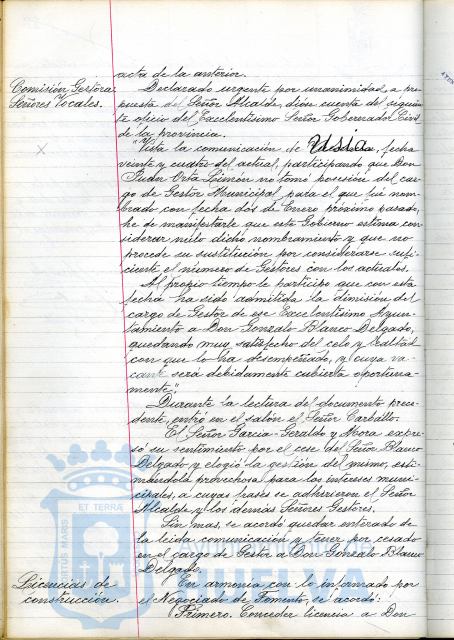 acta de la anterior.
Comisión Gestora:
Señores Vocales.
Declarado urgente por unanimidad, a pro-
puesta del Señor Alcalde, dióse cuenta del siguien-
te oficio del Excelentísimo Señor Gobernador Civil
de la provincia.
"Vista la comunicación de Usía, fecha
veinte y cuatro del actual, participando que Don
Juan Orta Limón no tomó posesión del car-
go de Gestor Municipal para el que fué nom-
brado con fecha dos de Enero próximo pasado,
he de manifestarle que este Gobierno estima con-
siderar nulo dicho nombramiento y que no
procede su sustitución por considerarse sufi-
ciente el número de Gestores con los actuales.
Al propio tiempo le participo que con esta
fecha ha sido admitida la dimisión del
cargo de Gestor de ese Excelentísimo Ayun-
tamiento a Don Gonzalo Blanco Delgado,
quedando muy satisfecho del celo y lealtad
con que lo ha desempeñado, y cuya va-
cante será debidamente cubierta oportuna-
mente".
Durante la lectura del documento prece-
dente, entró en el salón el Señor Carballo.
El Señor Garcia-Geraldo y Mora expre-
só su sentimiento por el cese del Señor Blanco
Delgado y elogió la gestión del mismo, esti-
mándola provechosa para los intereses muni-
cipales, a cuyas frases se adhirieron el Señor
Alcalde y los demás Señores Gestores.
Sin mas, se acordó quedar enterado de
la leida comunicación y tener por cesado
en el cargo de Gestor a Don Gonzalo Blanco
Delgado.
Licencias de
construcción.
En armonía con lo informado por
el Negociado de Fomento, se acordó:
Primero. Conceder licencia a Don
ET TERRA